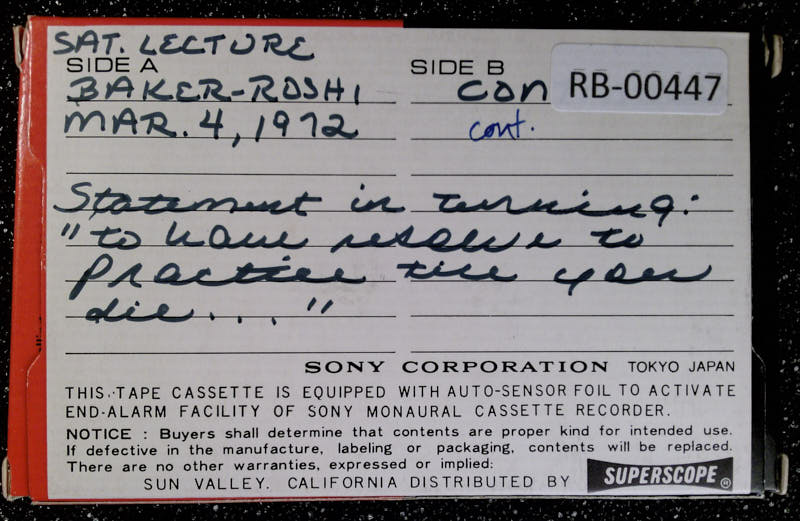 SAT. LECTURE
SIDE A SIDE B
BAKER-ROSHI CON RB-00447
MAR. 4, 1972 cont.
Statement in turning:
"to have resolve to
practice till you
die..."
SONY CORPORATION TOKYO JAPAN
THIS TAPE CASSETTE IS EQUIPPED WITH AUTO-SENSOR FOIL TO ACTIVATE
END-ALARM FACILITY OF SONY MONAURAL CASSETTE RECORDER.
NOTICE : Buyers shall determine that contents are proper kind for intended use.
If defective in the manufacture, labeling or packaging, contents will be replaced.
There are no other warranties, expressed or implied:
SUN VALLEY. CALIFORNIA DISTRIBUTED BY SUPERSCOPE®